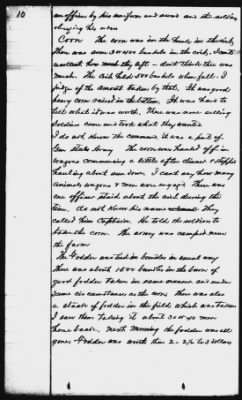 10
an officer by his uniform and sword and the soldiers
obeying his orders
Corn The corn was in the shuck in the crib,
There was some 3 or 400 bushels in the crib, I cant
recollect how much they left - dont think there was
much. The crib held 500 bushels when full. I
judge of the amount taken by that. It was good
heavy corn raised in the bottom. It was hard to
tell what it was worth. There was some selling
Soldiers came and took what they wanted
I do not know the command it was a part of
Gen Army. The corn was hauled off in
wagons commencing a little after dinner & stopped
hauling about sun down. I cant say how many
animals wagons & men were engaged There was
one officer staid about the crib during this
time. do not know his name They
called him Captain. He told the soldiers to
take the corn. The army was camped near
the farm
The Fodder was tied in bundles in usual way
There was about 1500 bundles in the barn of
good fodder taken in same manner and under
same circumstances as the corn. There was also
a stack of fodder in the field which was taken
I saw them taking it about 30 or 40 men
horse back. next morning the fodder was all
gone. Fodder was worth then 2 - 2½ to 3 dollars